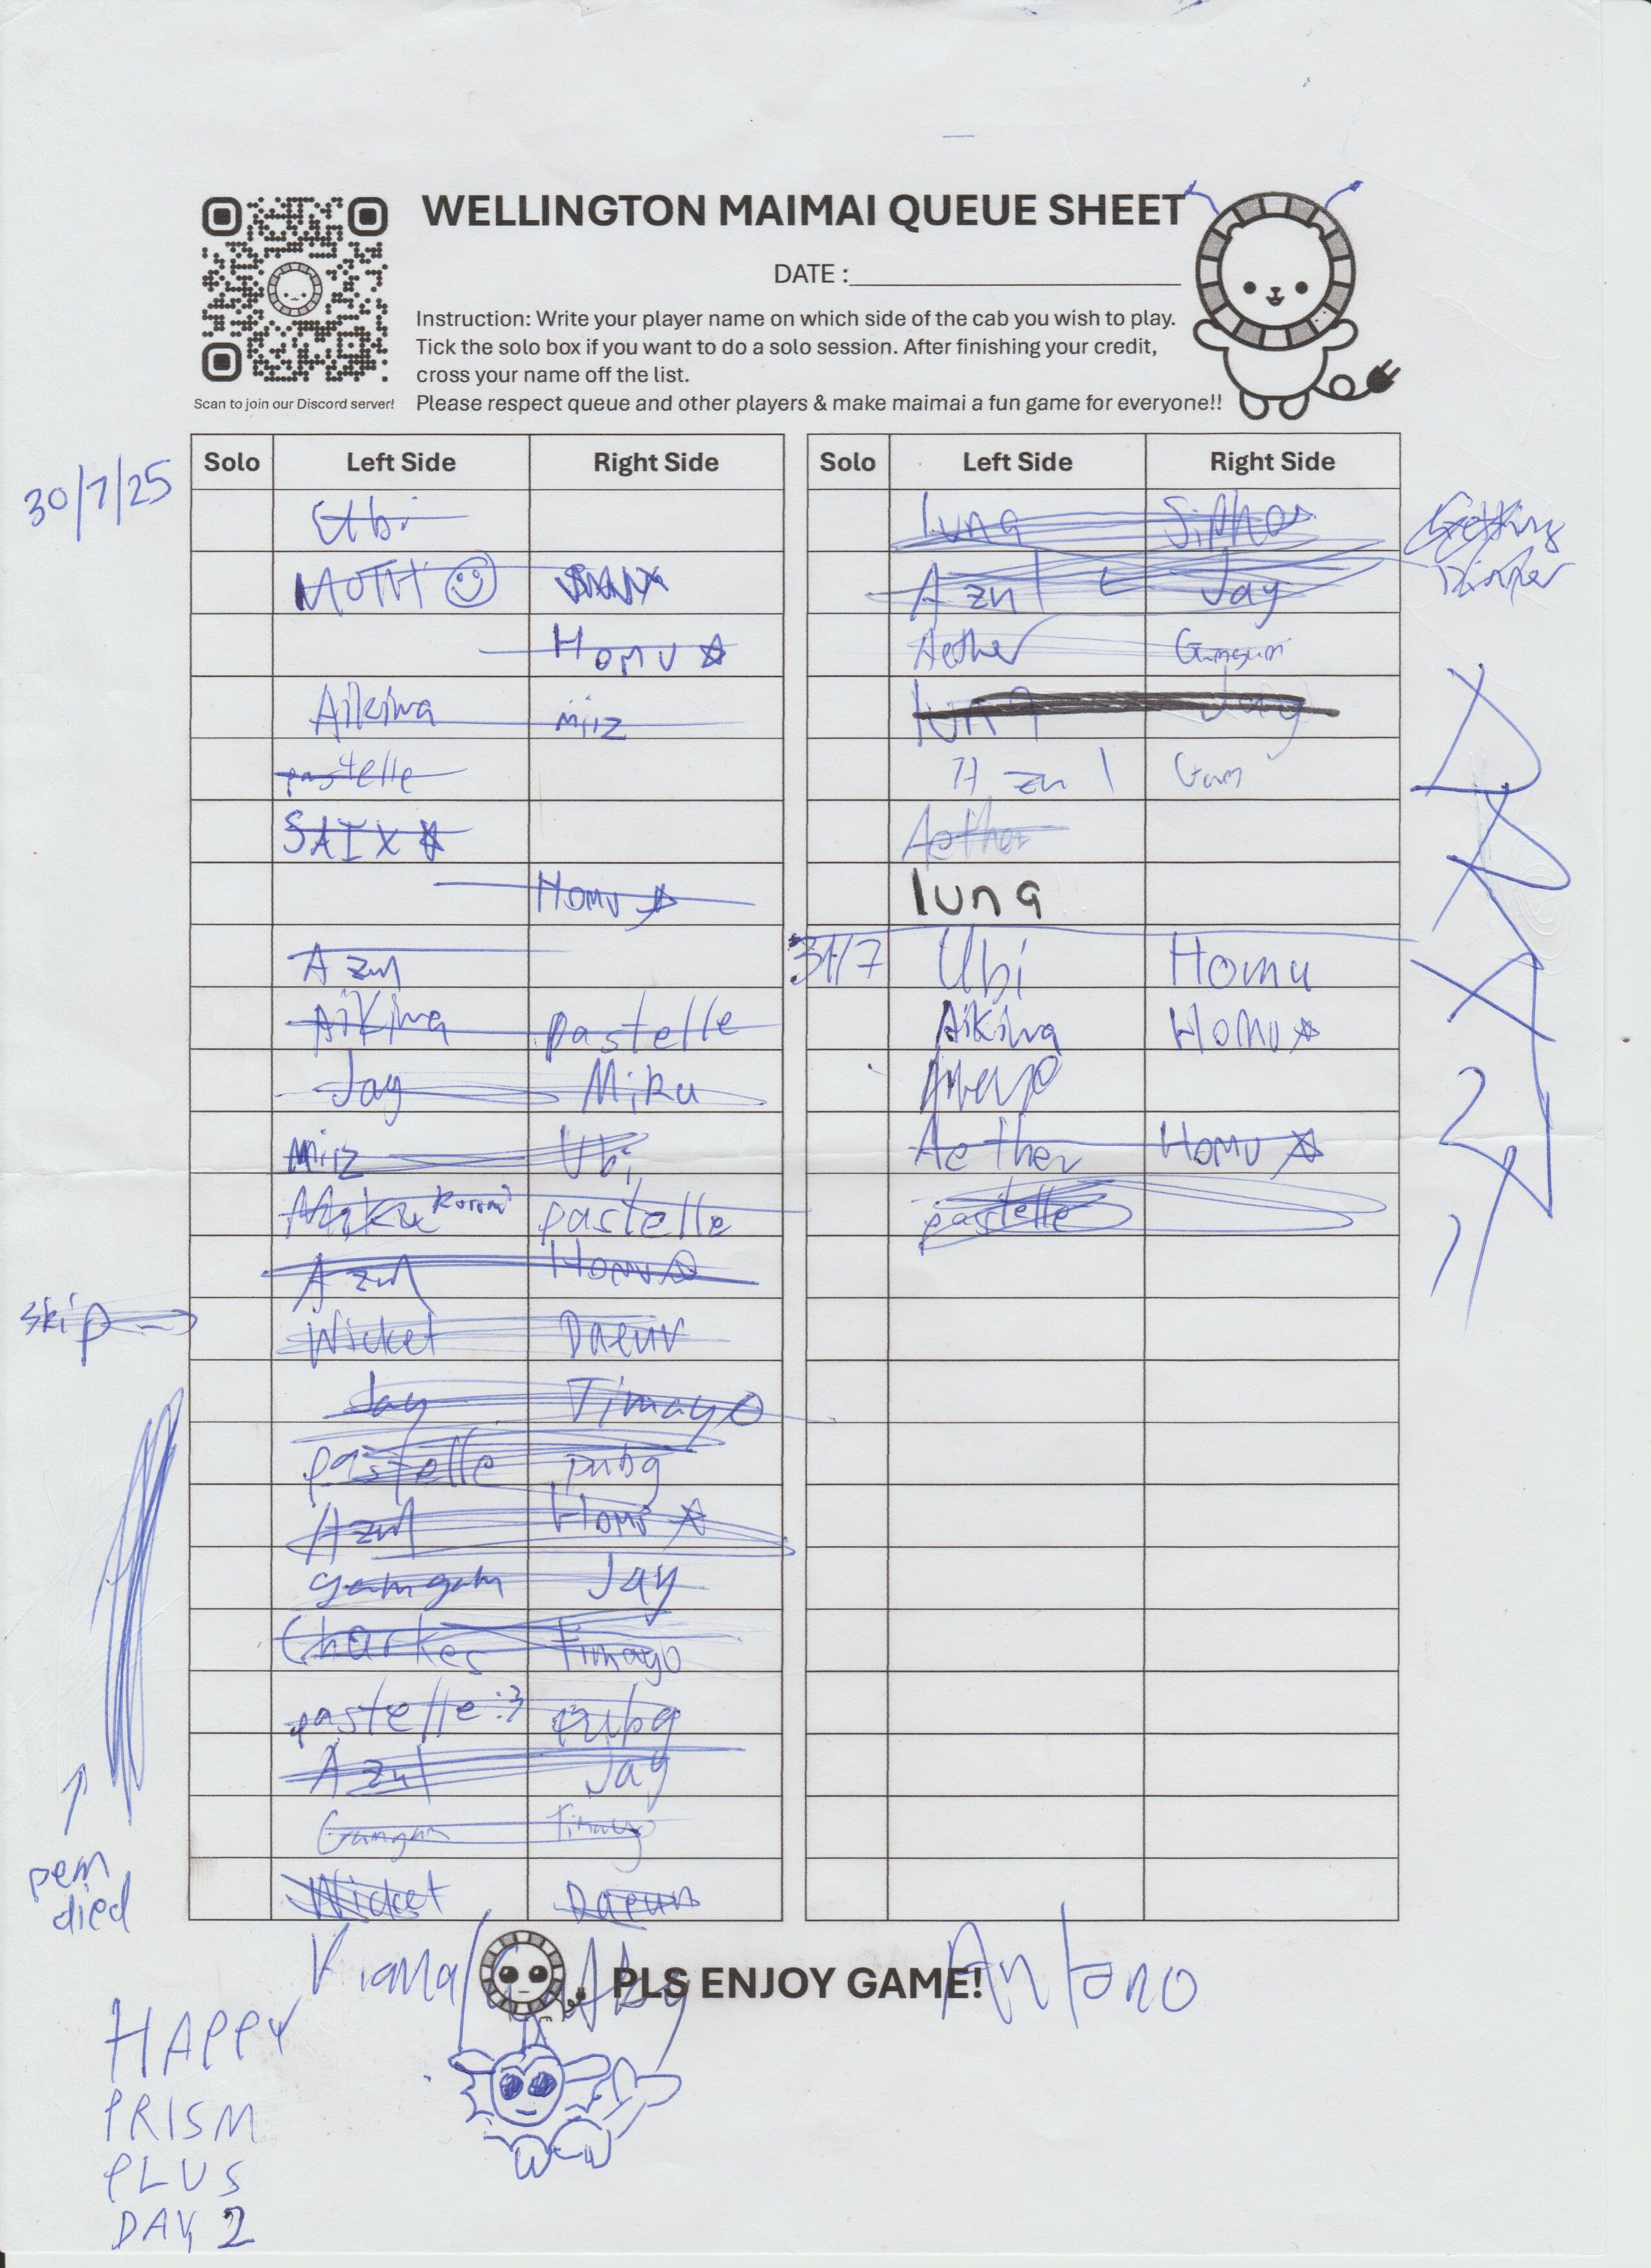 WELLINGTON MAIMAI QUEUE SHEET
DATE :
Instruction: Write your player name on which side of the cab you wish to play.
Tick the solo box if you want to do a solo session. After finishing your credit,
cross your name off the list.
Please respect queue and other players & make maimai a fun game for everyone!!
Scan to join our Discord server!
30/7/25
Solo Left Side Right Side
Ubi
MOTH
Homu ☆
Aikiwa miiz
pastelle
SAIX ☆
Homu ☆
Azul
Aikiwa pastelle
Jay Miku
miiz Ubi
pastelle
Azul Homu
skip → Wicket Daeuv
Jay Timayo
pastelle pubg
Azul Homu ☆
gamgam Jay
Charkes Timayo
pastelle :3 pubg
Azul Jay
Gamgam Timayo
Wicket Daeun
pen
died
Solo Left Side Right Side
luna
Azul Jay
Getting
Dinner
Aether Gumgum
luna Jay
Azul Gum
Aether
luna
31/7 Ubi Homu
Aikiwa Homu ☆
Aether Homu ☆
pastelle
PLS ENJOY GAME!
Antono
HAPPY
PRISM
PLUS
DAY 2